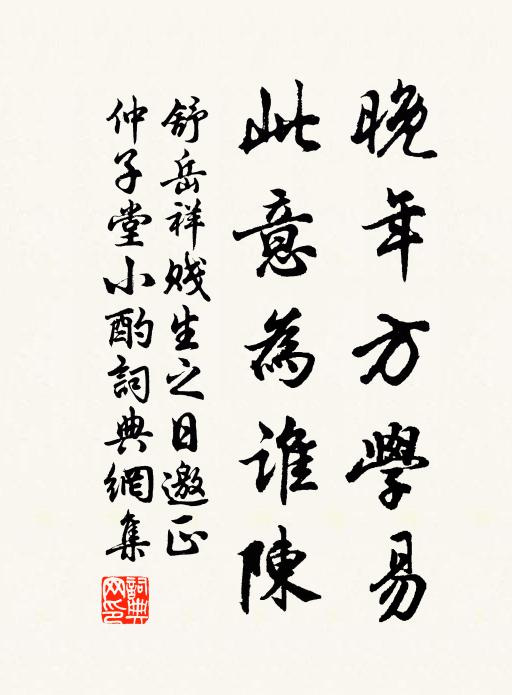 晚年方學易
此意為誰陳
舒岳祥贱生之日邀正
仲子堂小酌詞典網集
詞典
网印